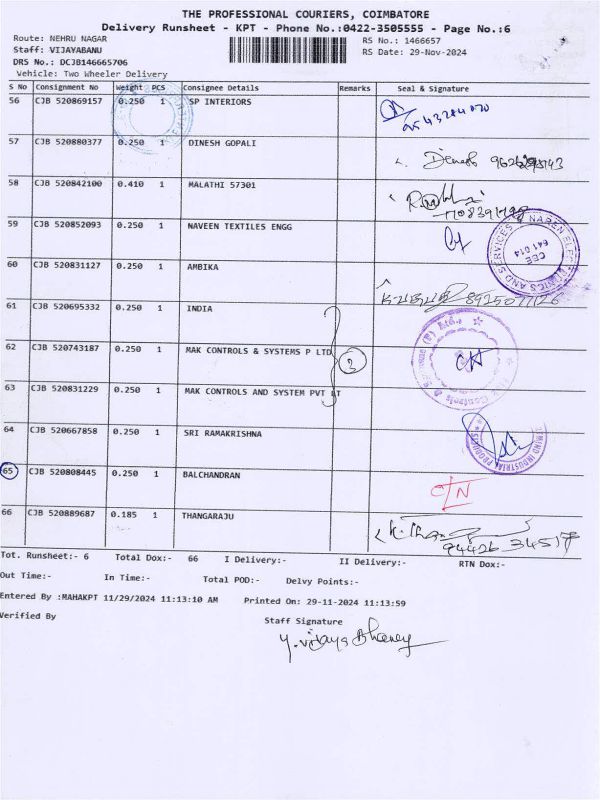 THE PROFESSIONAL COURIERS, COIMBATORE
Delivery Runsheet - KPT - Phone No.:0422-3505555 - Page No.:6
Route: NEHRU NAGAR
RS No.: 1466657
Staff: VIJAYABANU
RS Date: 29-Nov-2024
DRS No.: DCJB146665706
Vehicle: Two Wheeler Delivery
S No Consignment No Weight PCS Consignee Details Remarks Seal & Signature
56 CJB 520869157 0.250 1 SP INTERIORS
57 CJB 520880377 0.250 1 DINESH GOPALI
Dinesh
58 CJB 520842100 0.410 1 MALATHI 57301
59 CJB 520852093 0.250 1 NAVEEN TEXTILES ENGG
CBE 641 014
60 CJB 520831127 0.250 1 AMBIKA
8925071126
61 CJB 520695332 0.250 1 INDIA
62 CJB 520743187 0.250 1 MAK CONTROLS & SYSTEMS P LTD
3
63 CJB 520831229 0.250 1 MAK CONTROLS AND SYSTEM PVT LT
64 CJB 520667858 0.250 1 SRI RAMAKRISHNA
65 CJB 520808445 0.250 1 BALCHANDRAN
66 CJB 520889687 0.185 1 THANGARAJU
94426 34517
Tot. Runsheet:- 6 Total Dox:- 66 I Delivery:- II Delivery:- RTN Dox:-
Out Time:- In Time:- Total POD:- Delvy Points:-
Entered By :MAHAKPT 11/29/2024 11:13:10 AM Printed On: 29-11-2024 11:13:59
Verified By
Staff Signature